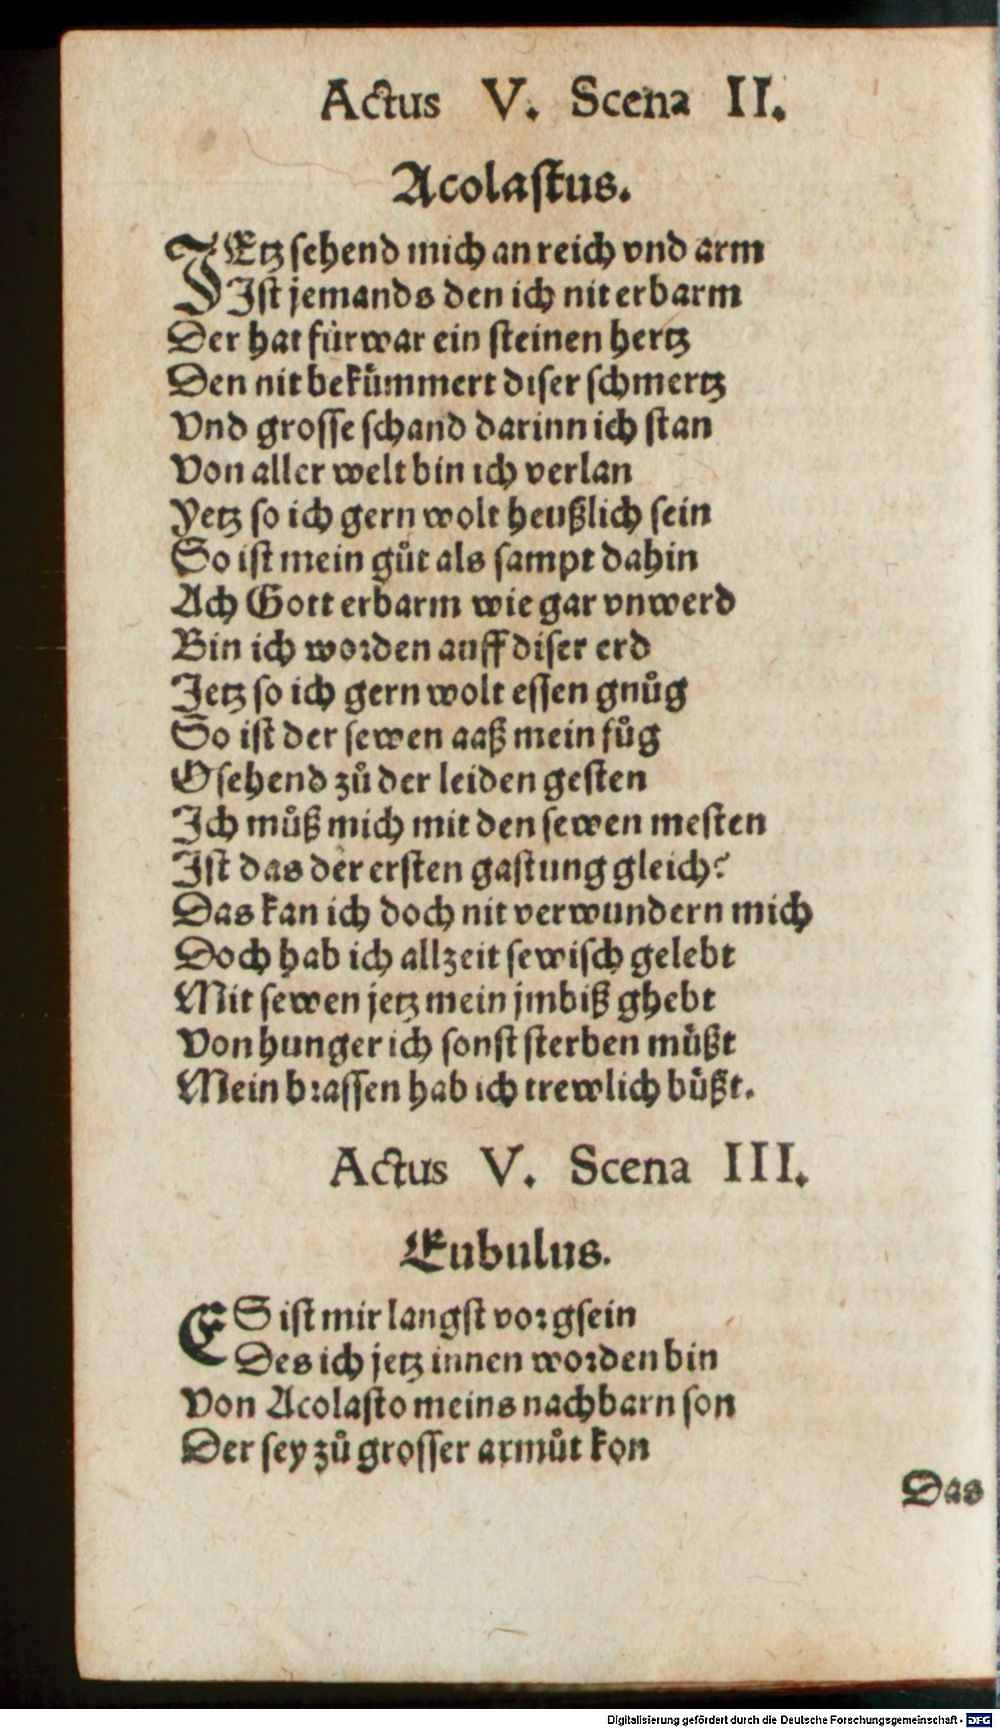 Actus V. Scena II.
Acolaſtus.
JEtz ſehend mich an reich vnd arm
Iſt jemands den ich nit erbarm
Der hat fürwar ein ſteinen hertz
Den nit bekümmert diſer ſchmertz
Vnd groſſe ſchand darinn ich ſtan
Von aller welt bin ich verlan
Yetz ſo ich gern wolt heußlich ſein
So iſt mein gůt als ſampt dahin
Ach Gott erbarm wie gar vnwerd
Bin ich worden auff diſer erd
Jetz ſo ich gern wolt eſſen gnůg
So iſt der ſewen aaß mein fůg
O ſehend zů der leiden geſten
Ich můß mich mit den ſewen meſten
Iſt das der erſten gaſtung gleich?
Das kan ich doch nit verwundern mich
Doch hab ich allzeit ſewiſch gelebt
Mit ſewen jetz mein jmbiß ghebt
Von hunger ich ſonſt ſterben müßt
Mein braſſen hab ich trewlich büßt.
Actus V. Scena III.
Eubulus.
ES iſt mir langſt vorgſein
Des ich jetz innen worden bin
Von Acolaſto meins nachbarn ſon
Der ſey zů groſſer armůt kon
Das
Digitalisierung gefördert durch die Deutsche Forschungsgemeinschaft - DFG